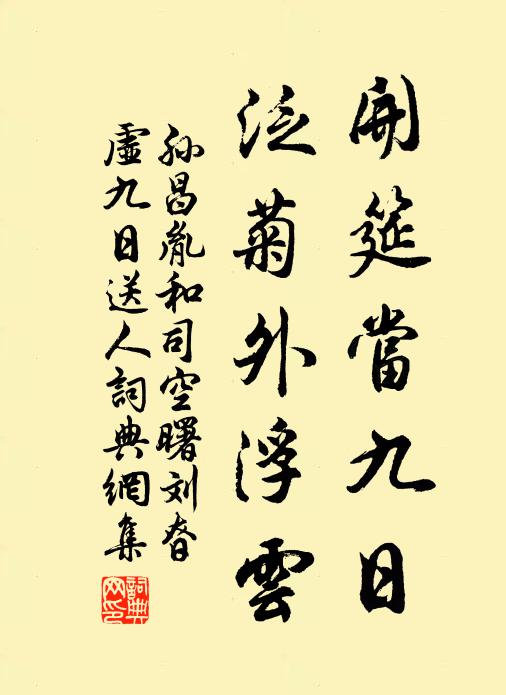 開筵當九日
泛菊外浮雲
孙昌胤和司空曙刘眘
虛九日送人詞典網集
詞典